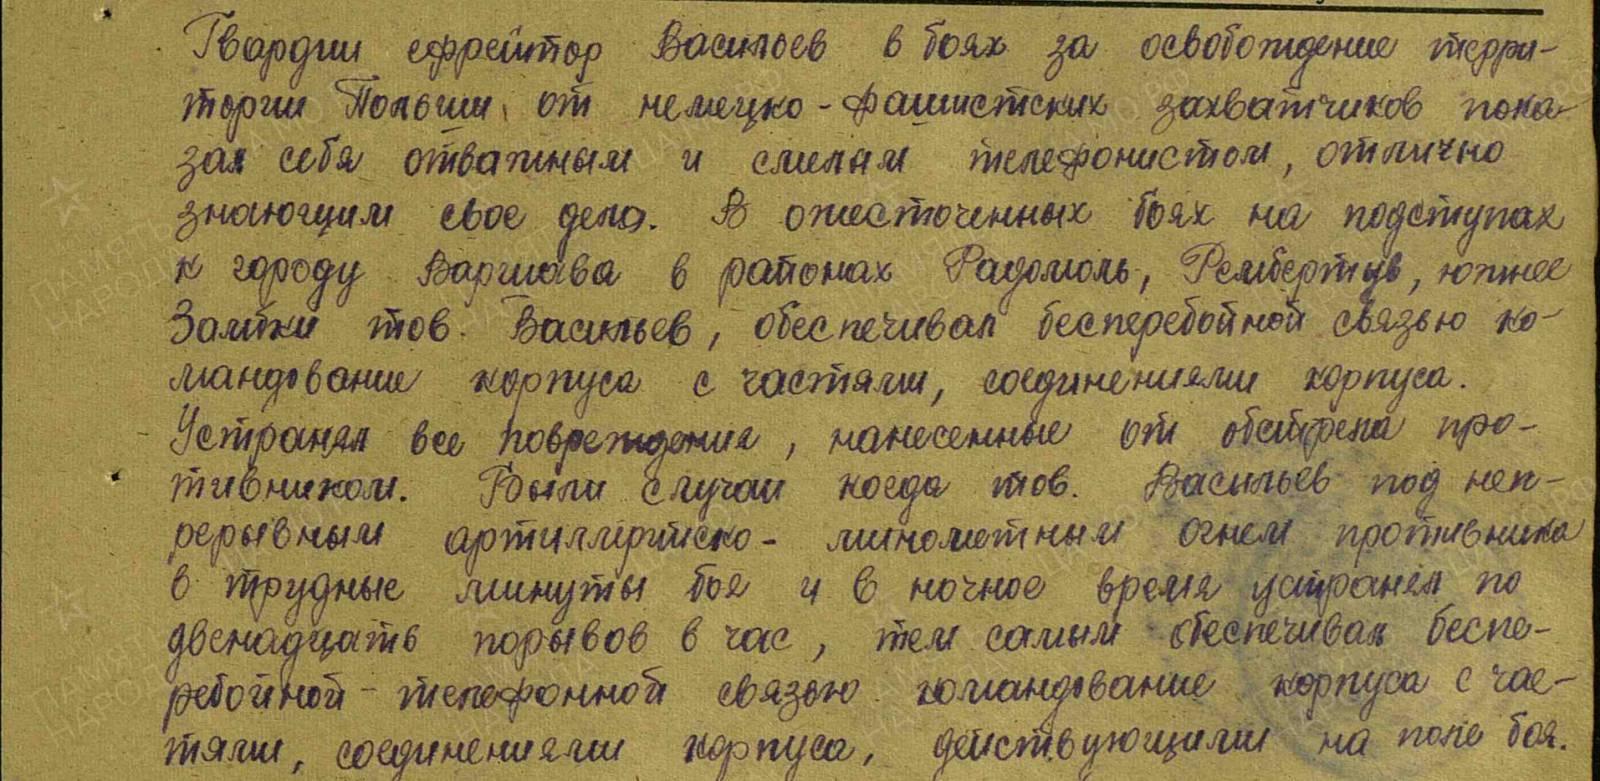 Гвардии ефрейтор Васильев в боях за освобождение терри-
тории Польши от немецко-фашистских захватчиков пока-
зал себя отважным и смелым телефонистом, отлично
знающим свое дело. В ожесточенных боях на подступах
к городу Варшава в районах Радомоль, Рембертув, южнее
Замбки тов. Васильев, обеспечивал бесперебойной связью ко-
мандование корпуса с частями, соединениями корпуса.
Устранял все повреждения, нанесенные от обстрела про-
тивником. Были случаи когда тов. Васильев под неп-
рерывным артиллерийско-минометным огнем противника
в трудные минуты боя и в ночное время устранял по
двенадцать порывов в час, тем самым обеспечивал беспе-
ребойной-телефонной связью командование корпуса с час-
тями, соединениями корпуса, действующими на поле боя.